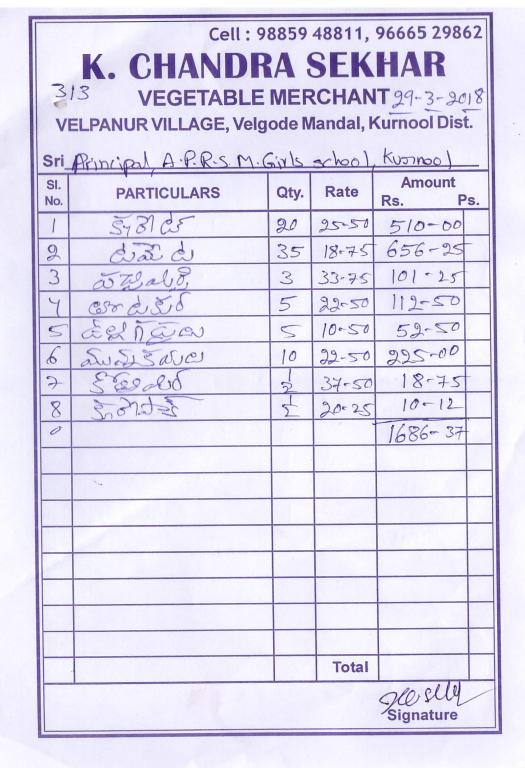 Cell : 98859 48811, 96665 29862
K. CHANDRA SEKHAR
313
VEGETABLE MERCHANT 29-3-2018
VELPANUR VILLAGE, Velgode Mandal, Kurnool Dist.
Sri Principal, A.P.R.S M. Girls school, Kurnool
Sl. No. PARTICULARS Qty. Rate Amount Rs. Ps.
1 క్యారెట్ 20 25-50 510-00
2 టమేట 35 18-75 656-25
3 పచ్చిమిర్చి 3 33-75 101-25
4 5 22-50 112-50
5 ఉల్లిగడ్డలు 5 10-50 52-50
6 మునక్కాయలు 10 22-50 225-00
7 కొత్తిమీర ½ 37-50 18-75
8 ½ 20-25 10-12
1686-37
Total
Signature